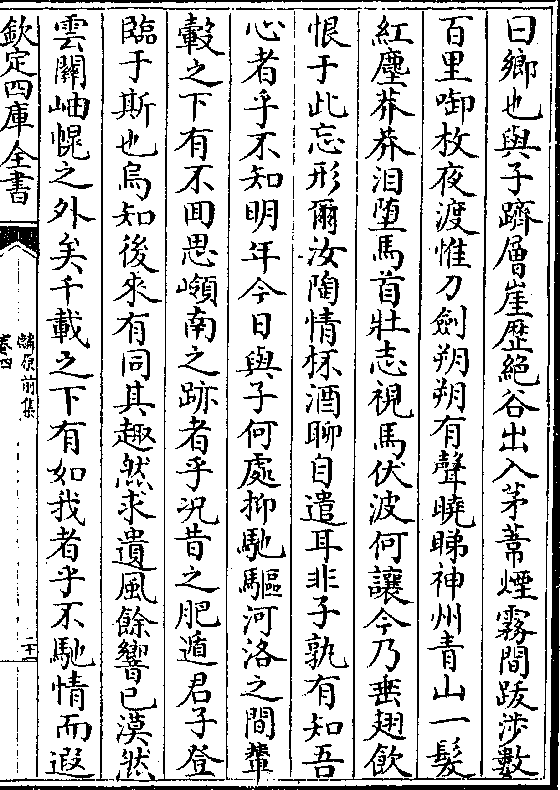 曰鄉也與子躋層崖歴絶谷出入茅葦煙霧間跋涉數
百里啣枚夜渡惟刀劍朔朔有聲曉睇神州青山一髮
紅塵莽莽泪墮馬首壯志視馬伏波何讓今乃垂翅飲
恨于此忘形爾汝陶情杯酒聊自遣耳非子孰有知吾
心者乎不知明年今日與子何處抑馳驅河洛之間輦
轂之下有不囬思嶺南之跡者乎况昔之肥遁君子登
臨于斯也烏知後來有同其趣然求遺風餘響已漠然
雲關岫幌之外矣千載之下有如我者乎不馳情而遐
欽定四庫全書
麟原前集
卷四
二十一